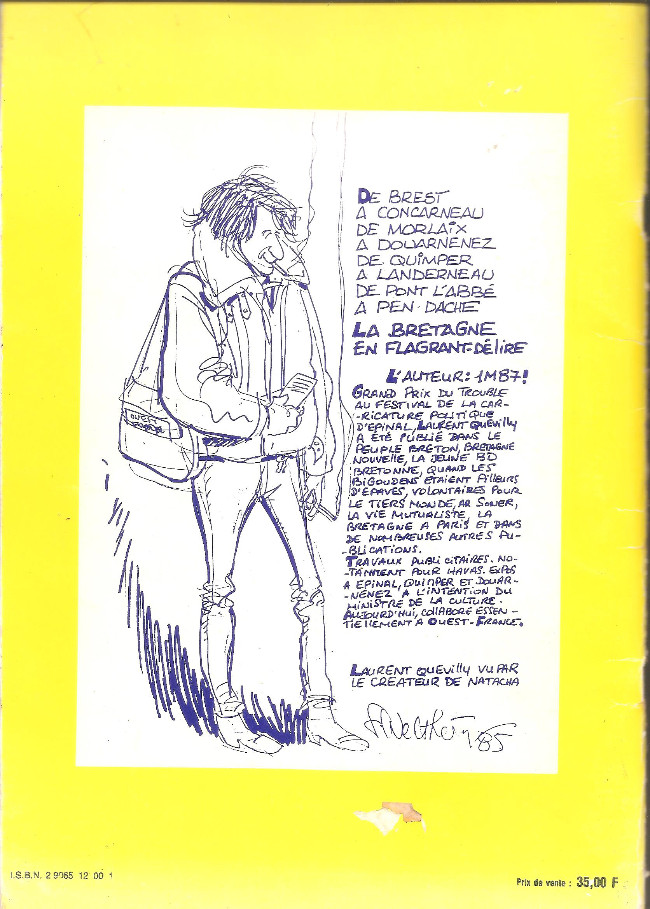 DE BREST
A CONCARNEAU
DE MORLAIX
A DOUARNENEZ
DE QUIMPER
A LANDERNEAU
DE PONT L'ABBÉ
A PEN-DACHE
LA BRETAGNE
EN FLAGRANT-DÉLIRE
L'AUTEUR: 1M87!
GRAND PRIX DU TROUBLE
AU FESTIVAL DE LA CAR-
-RICATURE POLITIQUE
D'EPINAL, LAURENT QUEVILLY
A ÉTÉ PUBLIÉ DANS LE
PEUPLE BRETON, BRETAGNE
NOUVELLE, LA JEUNE BD
BRETONNE, QUAND LES
BIGOUDENS ETAIENT PILLEURS
D'ÉPAVES, VOLONTAIRES POUR
LE TIERS MONDE, AR SONER,
LA VIE MUTUALISTE, LA
BRETAGNE A PARIS ET DANS
DE NOMBREUSES AUTRES PU-
-BLICATIONS.
TRAVAUX PUBLICITAIRES. NO-
-TAMMENT POUR HAVAS. EXPOS
A EPINAL, QUIMPER ET DOUAR-
-NENEZ A L'INTENTION DU
MINISTRE DE LA CULTURE.
AUJOURD'HUI, COLLABORE ESSEN-
TIELLEMENT A OUEST-FRANCE.
LAURENT QUEVILLY VU PAR
LE CREATEUR DE NATACHA
Walthéry 85
OUEST
FRANCE
I.S.B.N. 2 9065 12 00 1
Prix de vente : 35,00 F